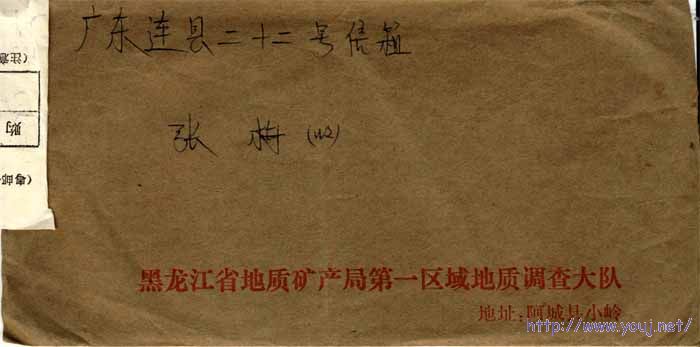 广东连县二十二号信箱
张梅(112)
黑龙江省地质矿产局第一区域地质调查大队
地址:阿城县小岭
http://www.youj.net/
(注意
购
(粤邮